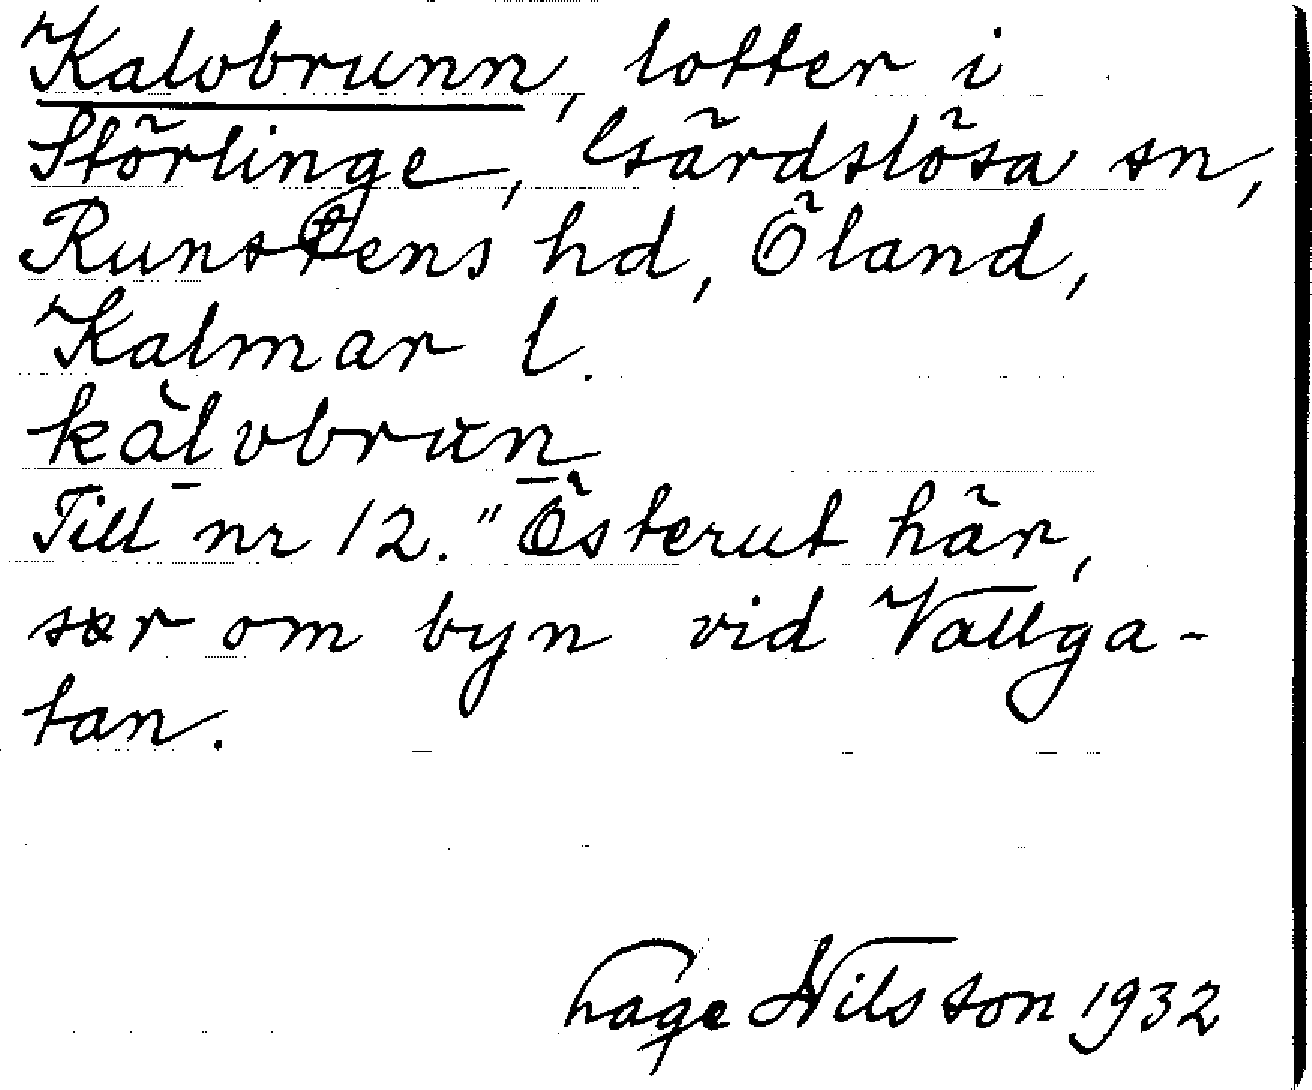 Kalvbrunn, lotter i
Störlinge, Gärdslösa sn,
Runstens hd, Öland,
Kalmar l.
kàlvbrun
Till nr 12. "Österut här,
sör om byn vid Vallga-
tan.
Hage Nilsson 1932